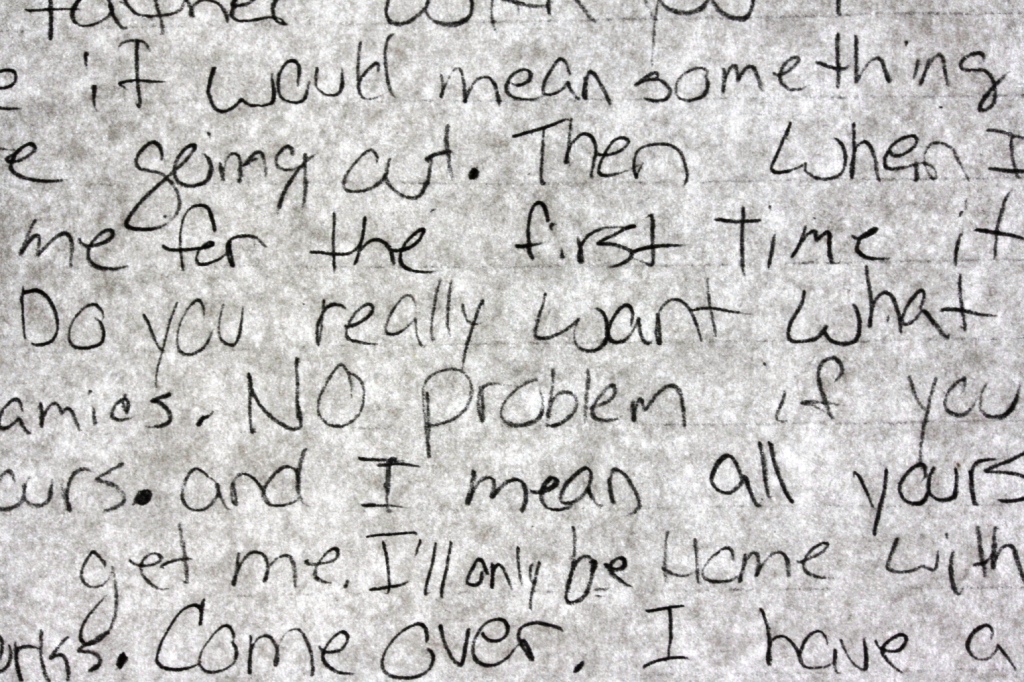 father with you
e it would mean something
e going out. Then when I
me for the first time it
Do you really want what
amies. NO problem if you
ours. and I mean all yours
get me. I'll only be Home with
orks. Come over. I have a